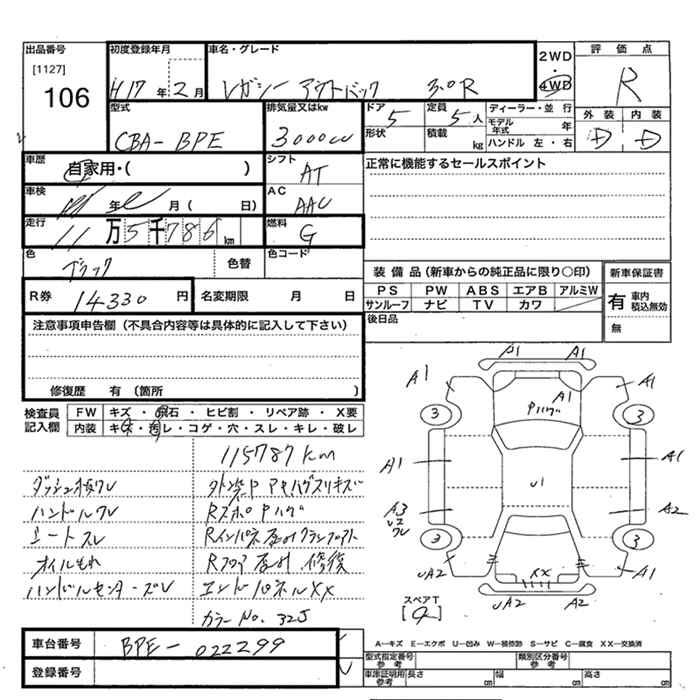 出品番号
[1127]
106
初度登録年月
H17 年 2 月
車名・グレード
レガシー アウトバック 3.0R
2WD
・
4WD
評価点
R
型式
CBA- BPE
排気量又はkw
3000cc
ドア
5
定員
5 人
形状
積載
kg
ディーラー・並行
モデル年式
年
ハンドル 左・右
外装 内装
D D
車歴
自家用・( )
シフト
AT
正常に機能するセールスポイント
車検
年 月( 日)
AC
AAC
走行
11 万 5 千 786 km
燃料
G
色
ブラック
色替
色コード
R券
14330 円
名変期限 月 日
装備品(新車からの純正品に限り○印)
PS PW ABS エアB アルミW
サンルーフ ナビ TV カワ
後日品
新車保証書
有 車内積込無効
無
注意事項申告欄(不具合内容等は具体的に記入して下さい)
修復歴 有(箇所 )
検査員記入欄
FW キズ・飛石・ヒビ割・リペア跡・X要
内装 キズ・汚レ・コゲ・穴・スレ・キレ・破レ
115787 km
ハンドルスレ
シートスレ
オイルもれ
エンドパネルXX
カラーNo. 32J
A1 A1 A1 A1
A1
Pハゲ
3 3
A1 A1
U1
A3 A2
3 3
UA2 A1
XX
UA2 A2
スペアT
[ ]
A-キズ E-エクボ U-凹み W-補修跡 S-サビ C-腐食 XX-交換済
車台番号
BPE-022299
登録番号
型式指定番号
参考
類別区分番号
参考
車庫証明用
参考
長さ cm
幅 cm
高さ cm